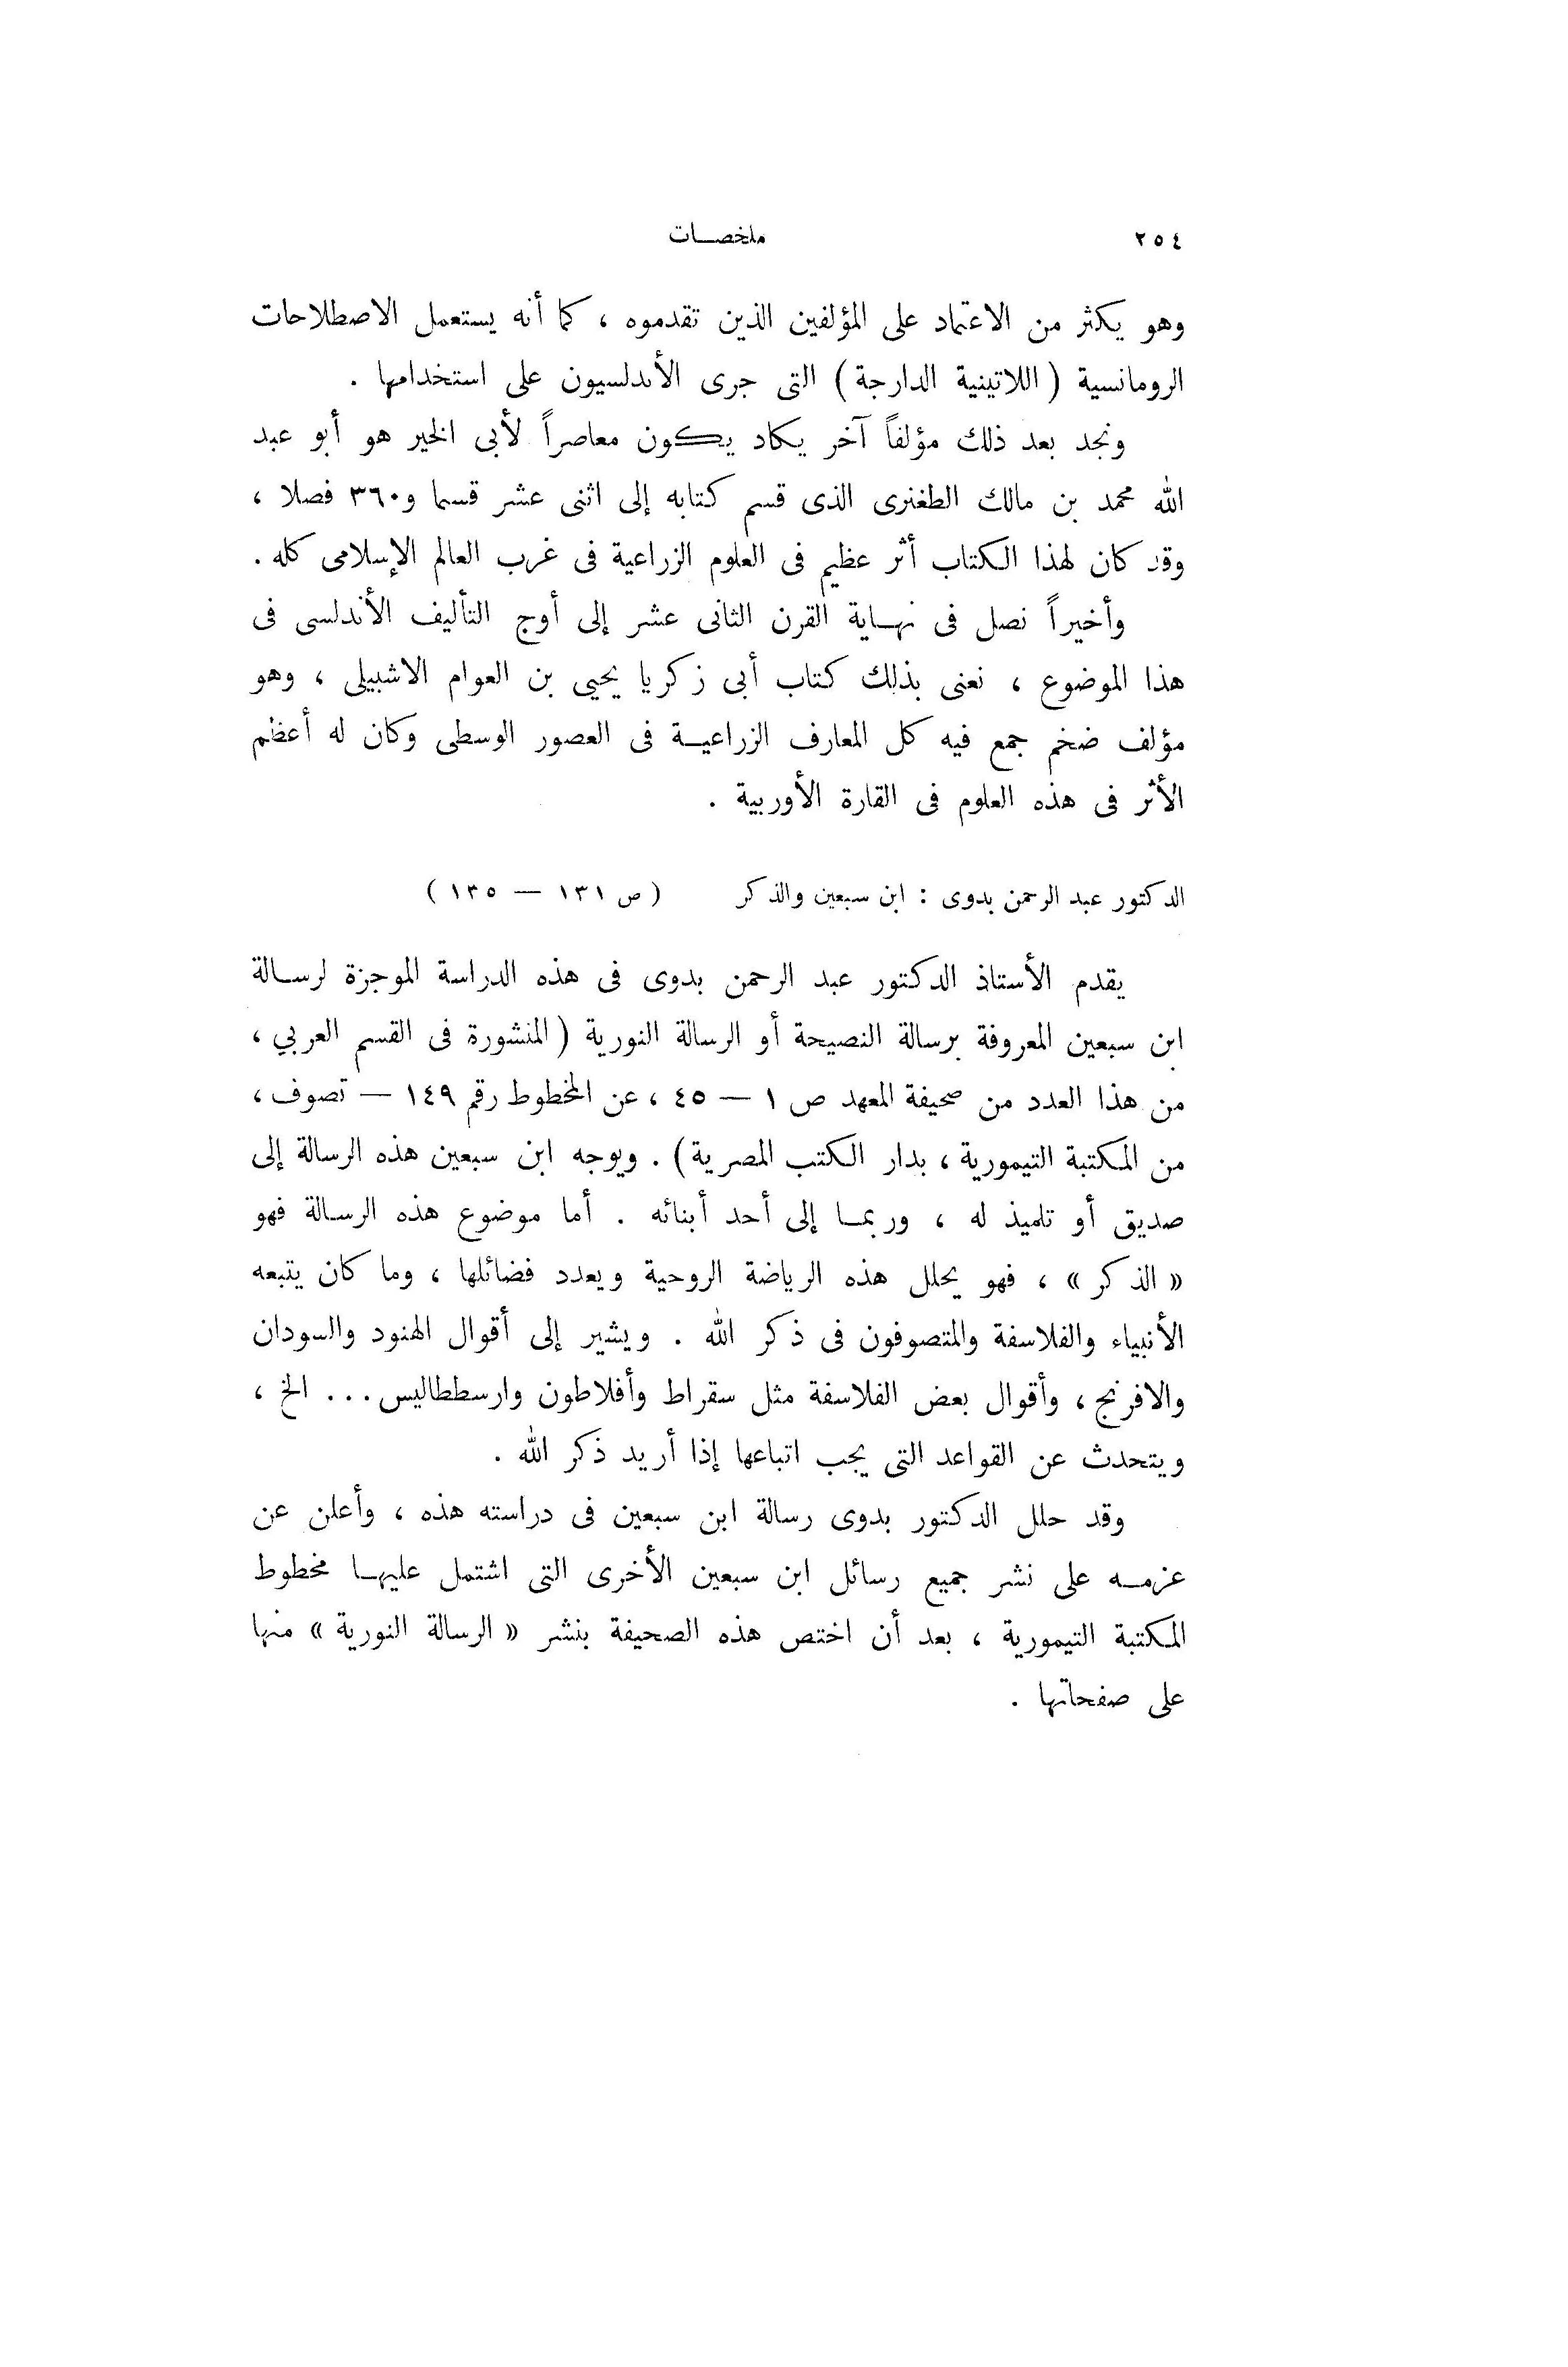 ٢٥٤ ملخصات
وهو يكثر من الاعتماد على المؤلفين الذين تقدموه ، كما أنه يستعمل الاصطلاحات
الرومانسية ( اللاتينية الدارجة ) التى جرى الأندلسيون على استخدامها .
ونجد بعد ذلك مؤلفاً آخر يكاد يكون معاصراً لأبى الخير هو أبو عبد
الله محمد بن مالك الطغنرى الذى قسم كتابه إلى اثنى عشر قسما و٣٦٠ فصلا ،
وقد كان لهذا الكتاب أثر عظيم فى العلوم الزراعية فى غرب العالم الإسلامى كله .
وأخيراً نصل فى نهاية القرن الثانى عشر إلى أوج التأليف الأندلسى فى
هذا الموضوع ، نعنى بذلك كتاب أبى زكريا يحيى بن العوام الاشبيلى ، وهو
مؤلف ضخم جمع فيه كل المعارف الزراعية فى العصور الوسطى وكان له أعظم
الأثر فى هذه العلوم فى القارة الأوربية .
الدكتور عبد الرحمن بدوى : ابن سبعين والذكر ( ص ١٣١ — ١٣٥ )
يقدم الأستاذ الدكتور عبد الرحمن بدوى فى هذه الدراسة الموجزة لرسالة
ابن سبعين المعروفة برسالة النصيحة أو الرسالة النورية ( المنشورة فى القسم العربي ،
من هذا العدد من صحيفة المعهد ص ١ — ٤٥ ، عن المخطوط رقم ١٤٩ — تصوف ،
من المكتبة التيمورية ، بدار الكتب المصرية ) . ويوجه ابن سبعين هذه الرسالة إلى
صديق أو تلميذ له ، وربما إلى أحد أبنائه . أما موضوع هذه الرسالة فهو
« الذكر » ، فهو يحلل هذه الرياضة الروحية ويعدد فضائلها ، وما كان يتبعه
الأنبياء والفلاسفة والمتصوفون فى ذكر الله . ويشير إلى أقوال الهنود والسودان
والافرنج ، وأقوال بعض الفلاسفة مثل سقراط وأفلاطون وارسططاليس ... الخ ،
ويتحدث عن القواعد التى يجب اتباعها إذا أريد ذكر الله .
وقد حلل الدكتور بدوى رسالة ابن سبعين فى دراسته هذه ، وأعلن عن
عزمه على نشر جميع رسائل ابن سبعين الأخرى التى اشتمل عليها مخطوط
المكتبة التيمورية ، بعد أن اختص هذه الصحيفة بنشر « الرسالة النورية » منها
على صفحاتها .